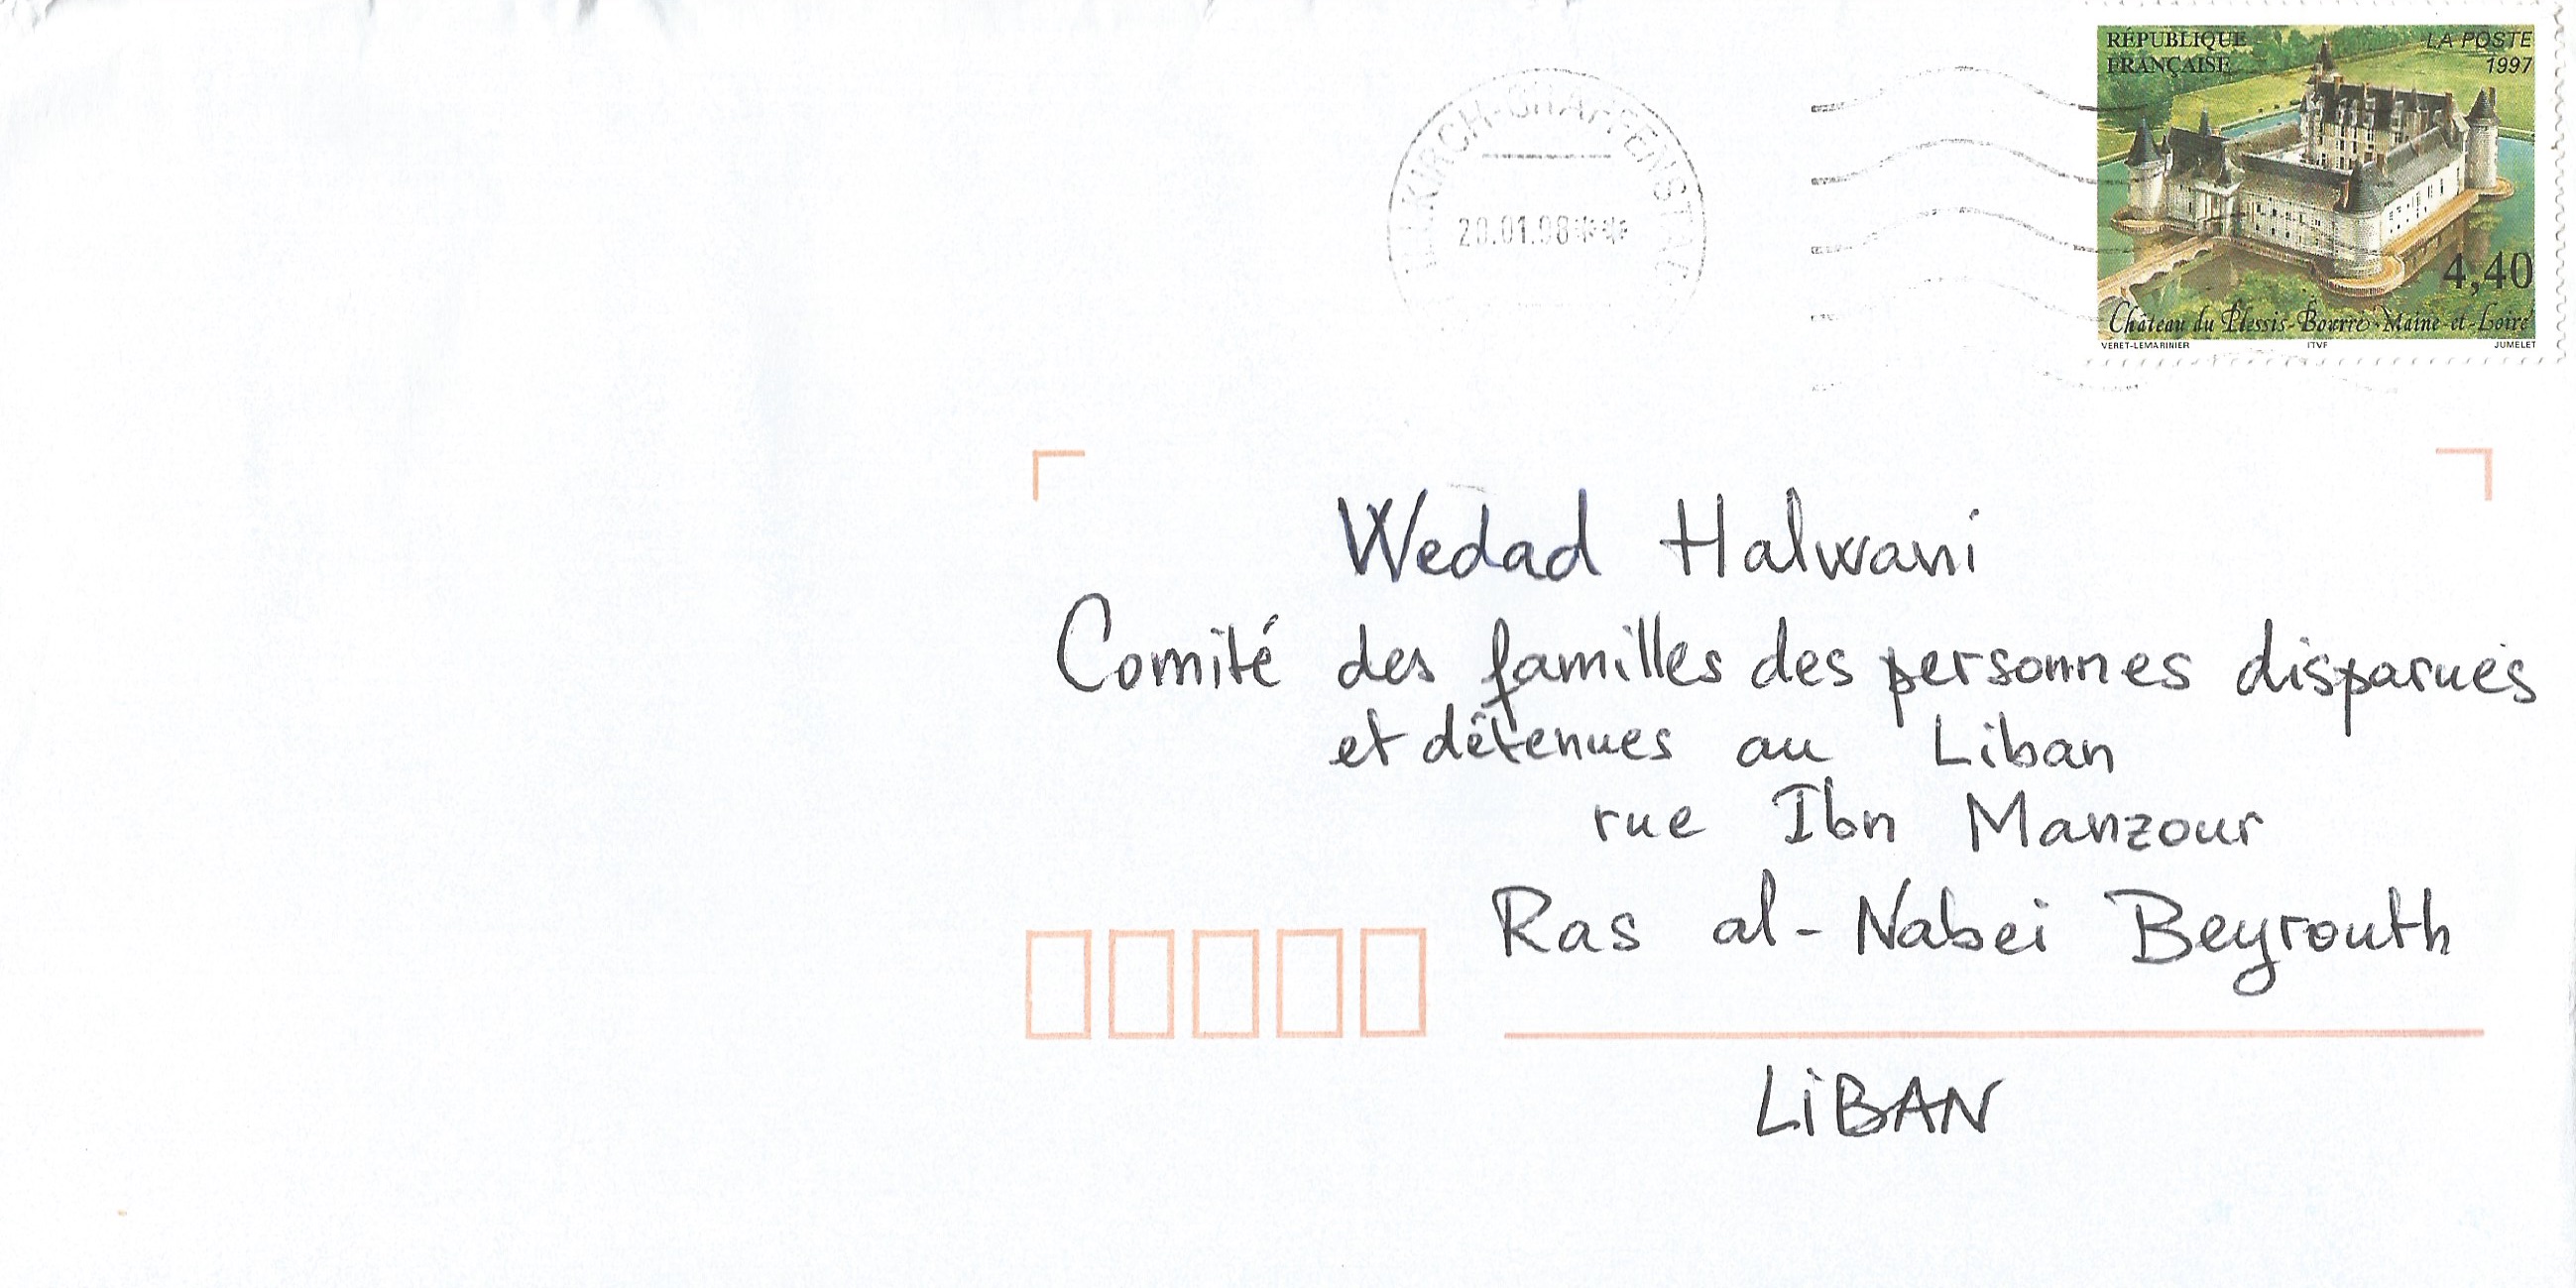 RÉPUBLIQUE
FRANÇAISE
LA POSTE
1997
4,40
Château du Plessis-Bourré-Maine-et-Loire
VERET-LEMARINIER ITVF JUMELET
20.01.98***
Wedad Halwani
Comité des familles des personnes disparues
et détenues au Liban
rue Ibn Manzour
Ras al-Nabei Beyrouth
LiBAN